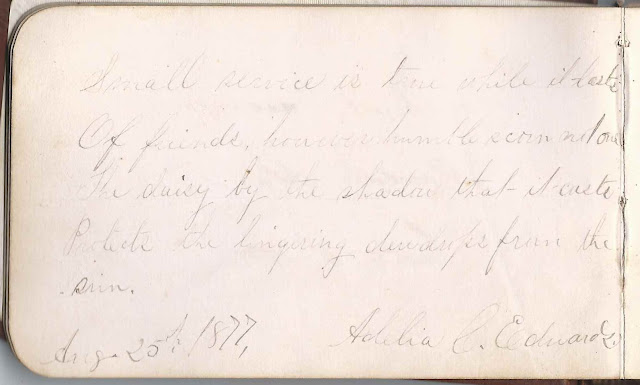 Small service is true while it lasts
Of friends, however humble scorn not one
The daisy by the shadow that it casts
Protects the lingering dewdrops from the
sun.
Aug. 25th. 1877, Adelia C. Edwards.